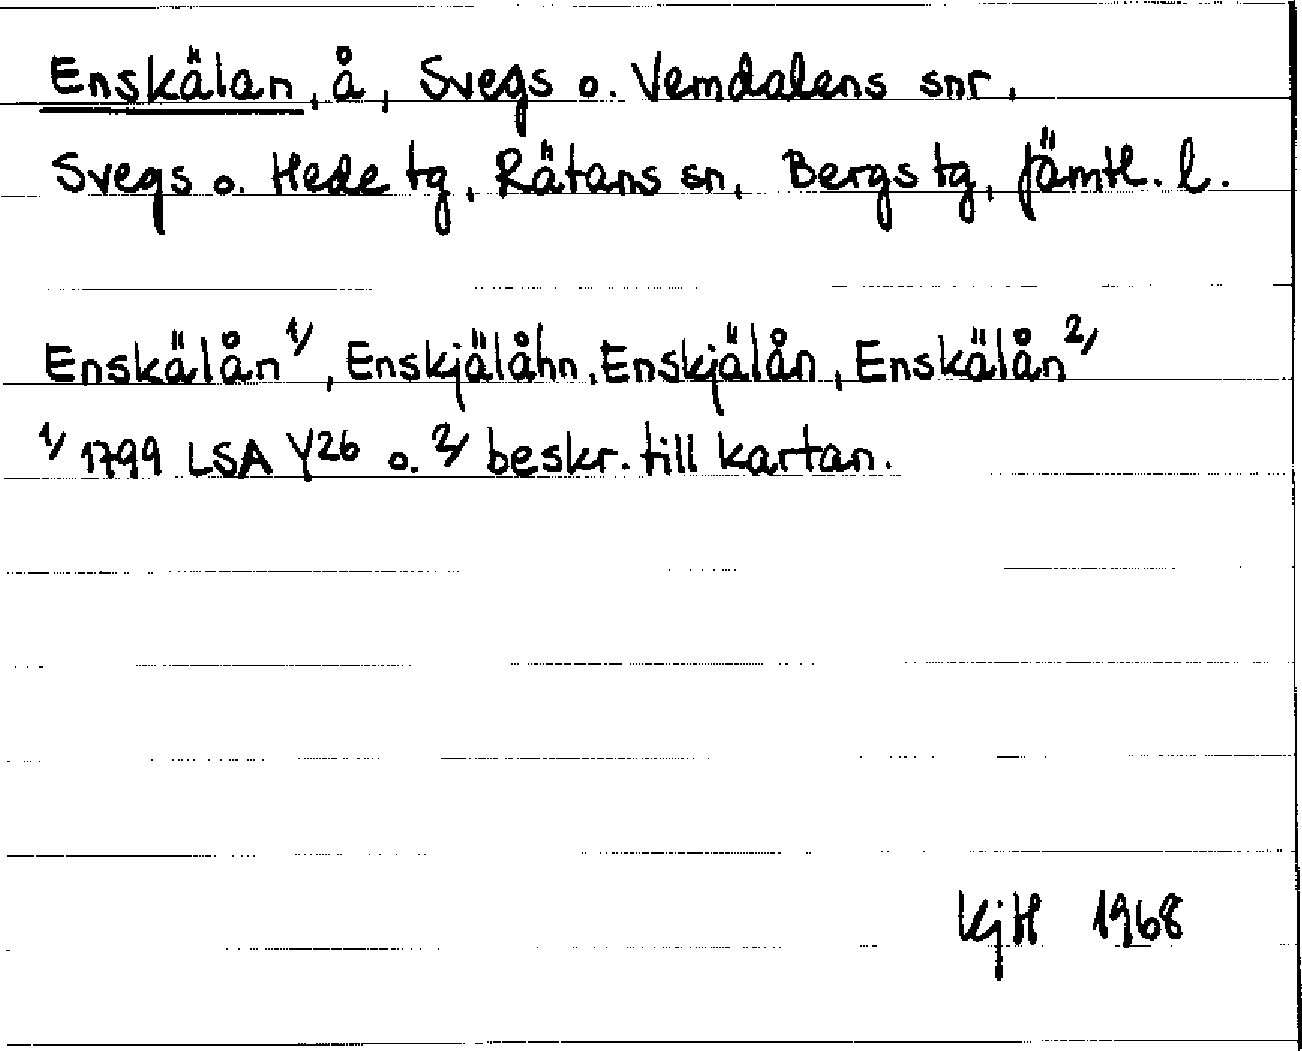 Enskälan, å, Svegs o. Vemdalens snr,
Svegs o. Hede tg, Rätans sn, Bergs tg, Jämtl. l.
Enskälån 1/, Enskjälåhn, Enskjälån, Enskälån 2/
1/ 1799 LSA Y26 o. 2/ beskr. till kartan.
KjH 1968